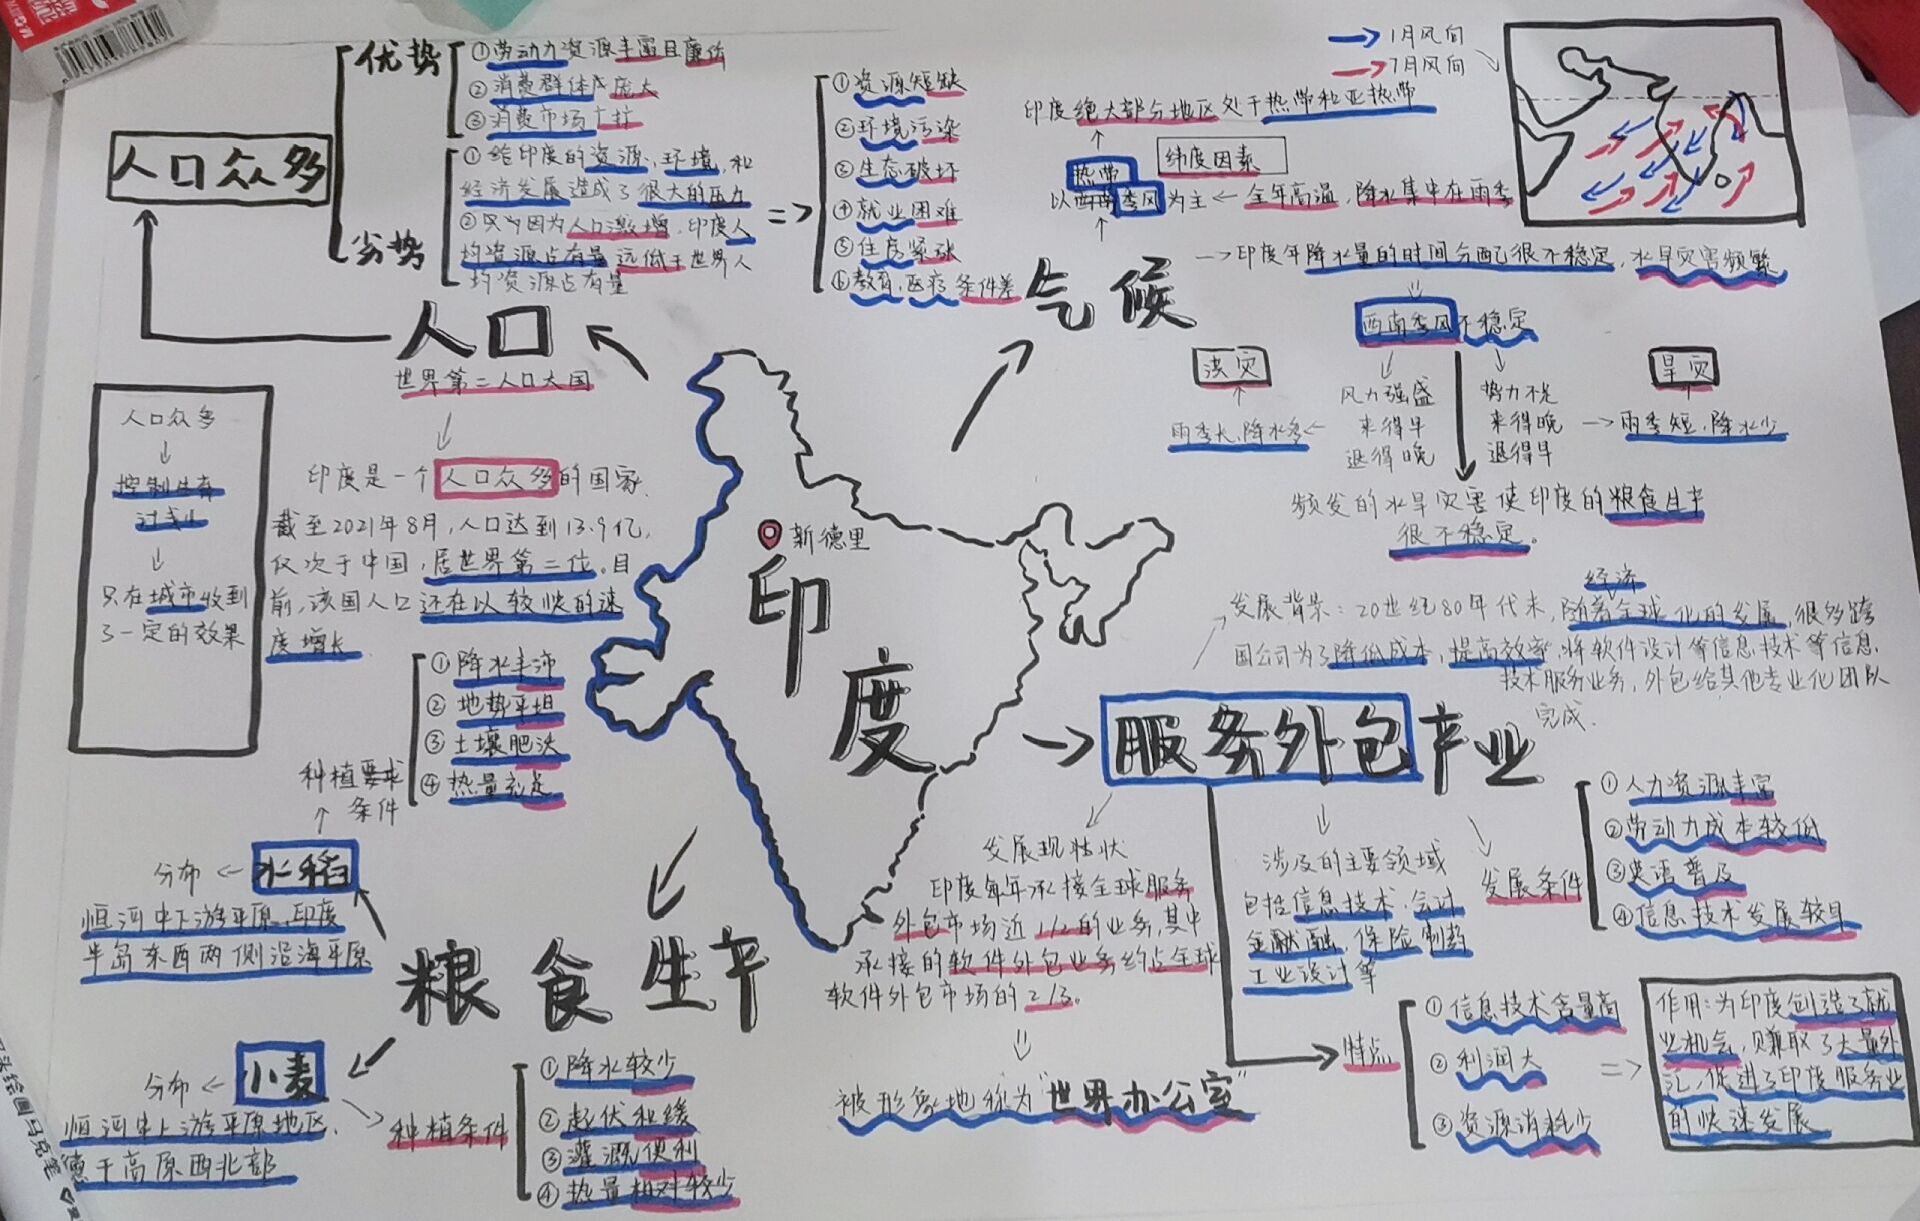 优势
①劳动力资源丰富且廉价
②消费群体庞大
③消费市场广
人口众多
①给印度的资源、环境、和
经济发展造成了很大的压力
劣势
②只因为人口激增,印度人
均资源占有量远低于世界人
均资源占有量
①资源短缺
②环境污染
③生态破坏
④就业困难
⑤住房紧张
⑥教育、医疗条件差
人口
世界第二人口大国
印度是一个人口众多的国家,
截至2021年8月,人口达到13.9亿,
仅次于中国,居世界第二位。目
前,该国人口还在以较快的速
度增长
人口众多
控制生育
只在城市收到
了一定的效果
1月风向
7月风向
印度绝大部分地区处于热带和亚热带
纬度因素
热带
以西南季风为主
全年高温,降水集中在雨季
气候
印度年降水量的时间分配很不稳定,水旱灾害频繁
西南季风不稳定
涝灾
旱灾
风力强盛
来得早
退得晚
势力不足
来得晚
退得早
雨季长,降水多
雨季短,降水少
频发的水旱灾害使印度的粮食生产
很不稳定。
新德里
印度
经济
发展背景:20世纪80年代末,随着全球化的发展,很多跨
国公司为了降低成本,提高效率,将软件设计等信息技术等信息
技术服务业务,外包给其他专业化团队
完成.
服务外包产业
发展现状
印度每年承接全球服务
外包市场近1/2的业务,其中
承接的软件外包业务约占全球
软件外包市场的2/3。
被形象地称为"世界办公室"
涉及的主要领域
包括信息技术,会计
金融,保险制药
工业设计等
发展条件
①人力资源丰富
②劳动力成本较低
③英语普及
④信息技术发展较早
特点
①信息技术含量高
②利润大
③资源消耗少
作用:为印度创造了就
业机会,赚取了大量外
汇,促进了印度服务业
的快速发展
粮食生产
水稻
种植要求
条件
①降水丰沛
②地势平坦
③土壤肥沃
④热量充足
分布
恒河中下游平原,印度
半岛东西两侧沿海平原
小麦
分布
恒河中上游平原地区,
德干高原西北部
种植条件
①降水较少
②起伏和缓
③灌溉便利
④热量相对较少